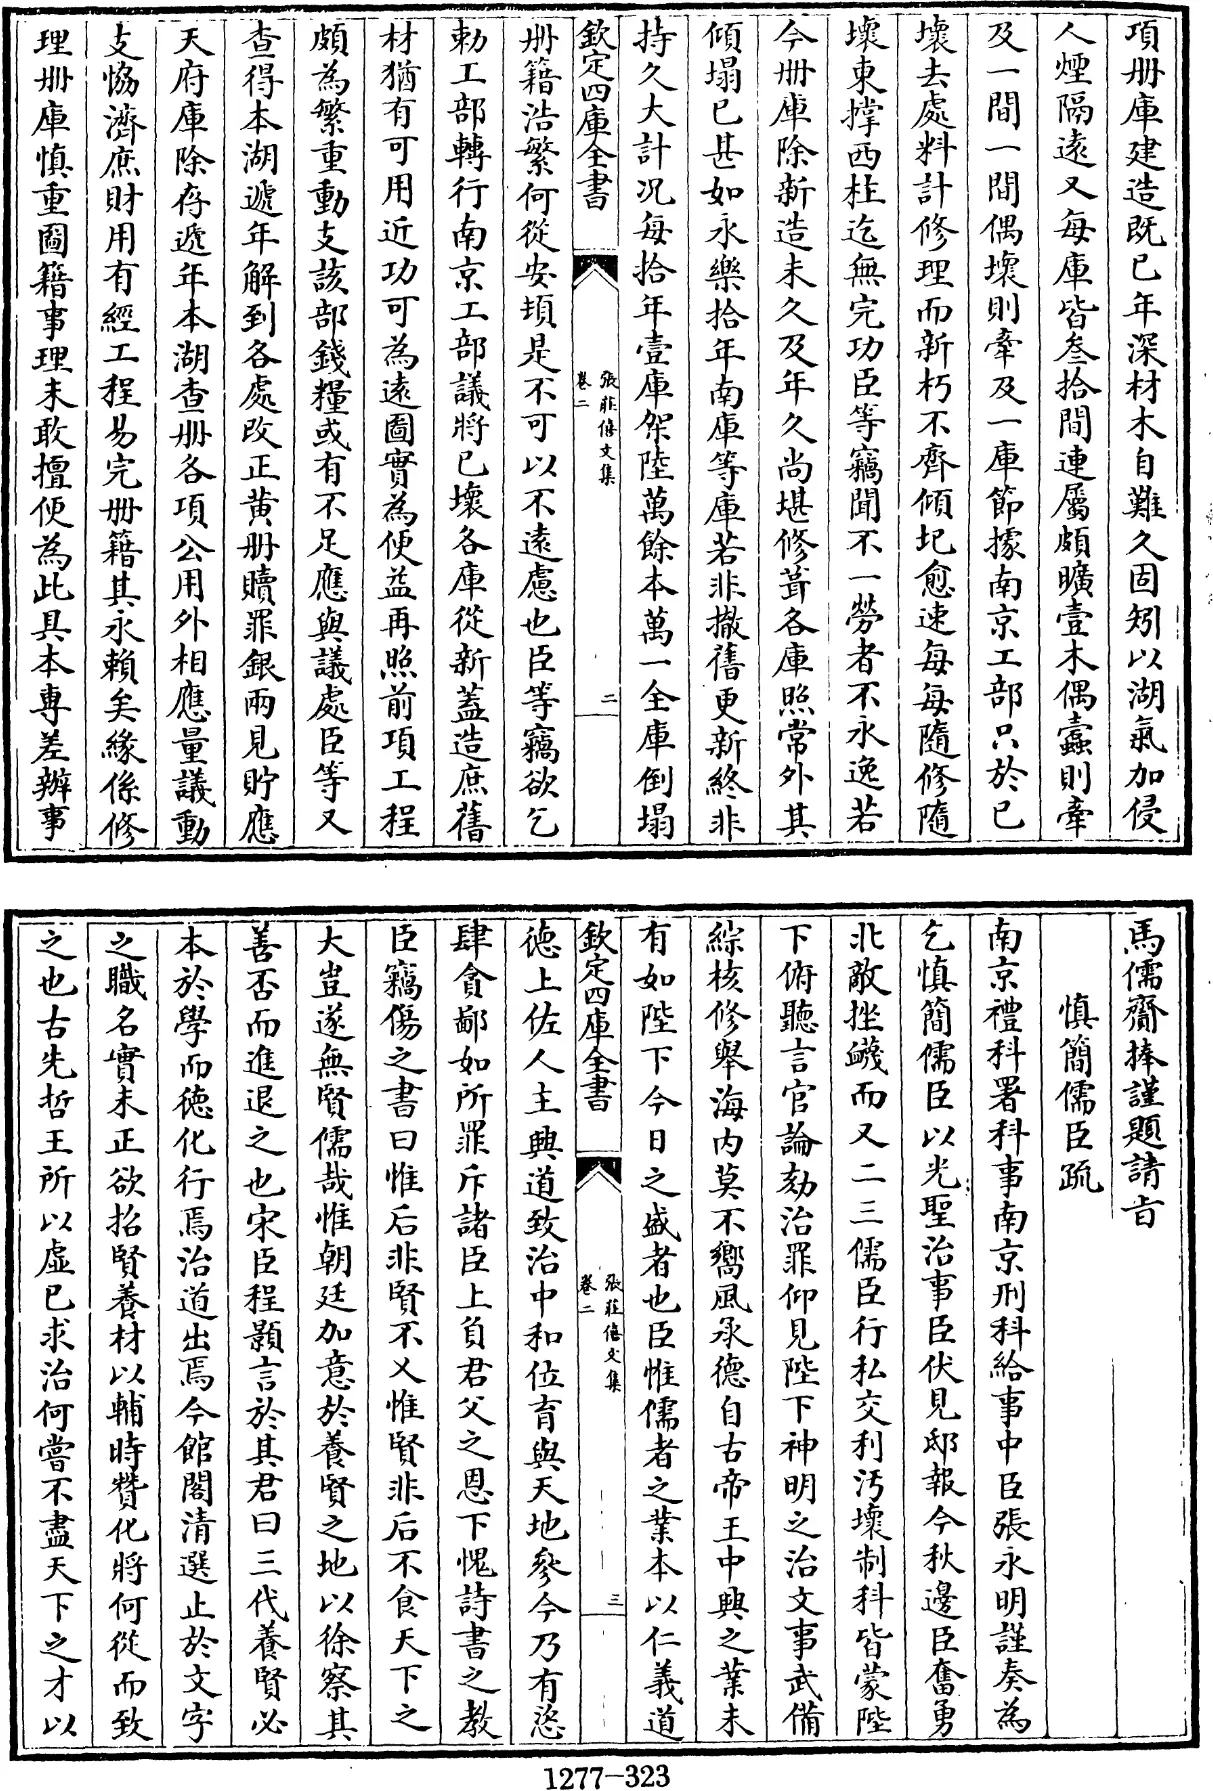 項册庫建造既已年深材木自難久固矧以湖氣加侵
人煙隔逺又每庫皆叁拾間連屬頗曠壹木偶蠹則牽
及一間一間偶壞則牽及一庫節據南京工部只於已
壞去處料計修理而新朽不齊傾圮愈速每每隨修隨
壞東撑西柱迄無完功臣等竊聞不一勞者不永逸若
今册庫除新造未久及年久尚堪修葺各庫照常外其
傾塌已甚如永樂拾年南庫等庫若非撤舊更新終非
持久大計况每拾年壹庫架陸萬餘本萬一全庫倒塌
欽定四庫全書
張莊僖文集
卷二
二
册籍浩繁何從安頓是不可以不逺慮也臣等竊欲乞
勅工部轉行南京工部議將已壞各庫從新蓋造庶舊
材猶有可用近功可為逺圖實為便益再照前項工程
頗為繁重動支該部錢糧或有不足應與議處臣等又
查得本湖遞年解到各處改正黄册贖罪銀兩見貯應
天府庫除存遞年本湖查册各項公用外相應量議動
支恊濟庶財用有經工程易完册籍其永賴矣緣係修
理册庫慎重圖籍事理未敢擅便為此具本専差辦事
馬儒齎捧謹題請㫖
慎簡儒臣疏
南京禮科署科事南京刑科給事中臣張永明謹奏為
乞慎簡儒臣以光聖治事臣伏見邸報今秋邊臣奮勇
北敵挫衂而又二三儒臣行私交利汚壞制科皆蒙陛
下俯聽言官論劾治罪仰見陛下神明之治文事武備
綜核修舉海内莫不嚮風承德自古帝王中興之業未
有如陛下今日之盛者也臣惟儒者之業本以仁義道
欽定四庫全書
張莊僖文集
卷二
三
徳上佐人主興道致治中和位育與天地參今乃有恣
肆貪鄙如所罪斥諸臣上負君父之恩下愧詩書之教
臣竊傷之書曰惟后非賢不乂惟賢非后不食天下之
大豈遂無賢儒哉惟朝廷加意於養賢之地以徐察其
善否而進退之也宋臣程顥言於其君曰三代養賢必
本於學而徳化行焉治道出焉今館閣清選止於文字
之職名實未正欲招賢養材以輔時贊化將何從而致
之也古先哲王所以虚已求治何嘗不盡天下之才以
1277-323